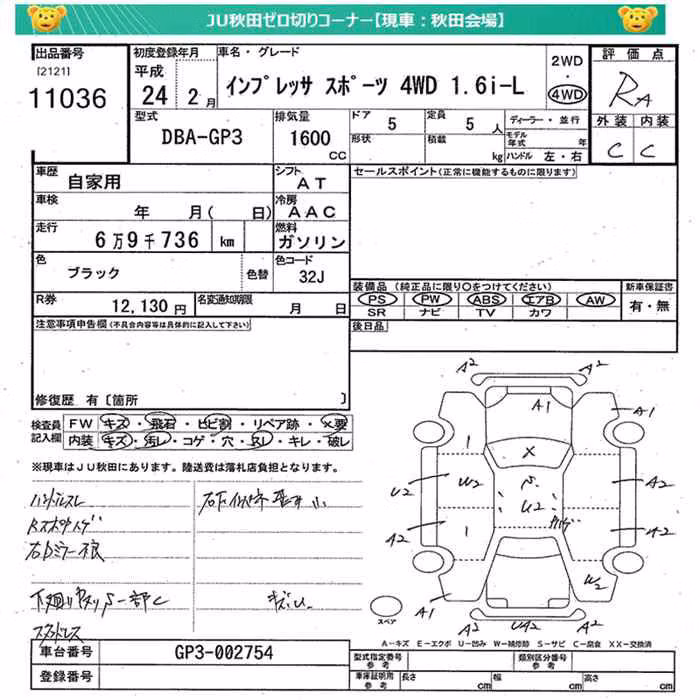 JU秋田ゼロ切りコーナー【現車：秋田会場】
出品番号
[2121]
11036
初度登録年月
平成
24年 2月
車名・グレード
インプレッサ スポーツ 4WD 1.6i-L
2WD
・
4WD
評価点
RA
外装 内装
C C
型式
DBA-GP3
排気量
1600
CC
ドア 5
定員 5 人
形状
積載 kg
ディーラー・並行
モデル年式 年
ハンドル 左・右
車歴
自家用
シフト
AT
車検
年 月( 日)
冷房
AAC
走行
6万9千736 km
燃料
ガソリン
色
ブラック
色替
色コード
32J
R券
12,130円
名変通知期限
月 日
セールスポイント(正常に機能するものに限ります)
装備品 (純正品に限り○をつけてください)
PS PW ABS エアB AW
SR ナビ TV カワ
新車保証書
有・無
後日品
注意事項申告欄(不具合内容等は具体的に記入して下さい)
修復歴 有〔箇所 〕
検査員
記入欄
FW キズ・飛石・ヒビ割・リペア跡・×要
内装 キズ・汚レ・コゲ・穴・スレ・キレ・破レ
※現車はJU秋田にあります。陸送費は落札店負担となります。
ハンドルスレ
スタッドレス
A2 A2
A1 A1
1 X
U2 W2 U2 A2
A2 1 A2
W2
A1
A2 UA2 A2
スペア
A－キズ E－エクボ U－凹み W－補修跡 S－サビ C－腐食 XX－交換済
車台番号
GP3-002754
登録番号
型式指定番号
参考
類別区分番号
参考
車庫証明用
参考
長さ cm 幅 cm 高さ cm